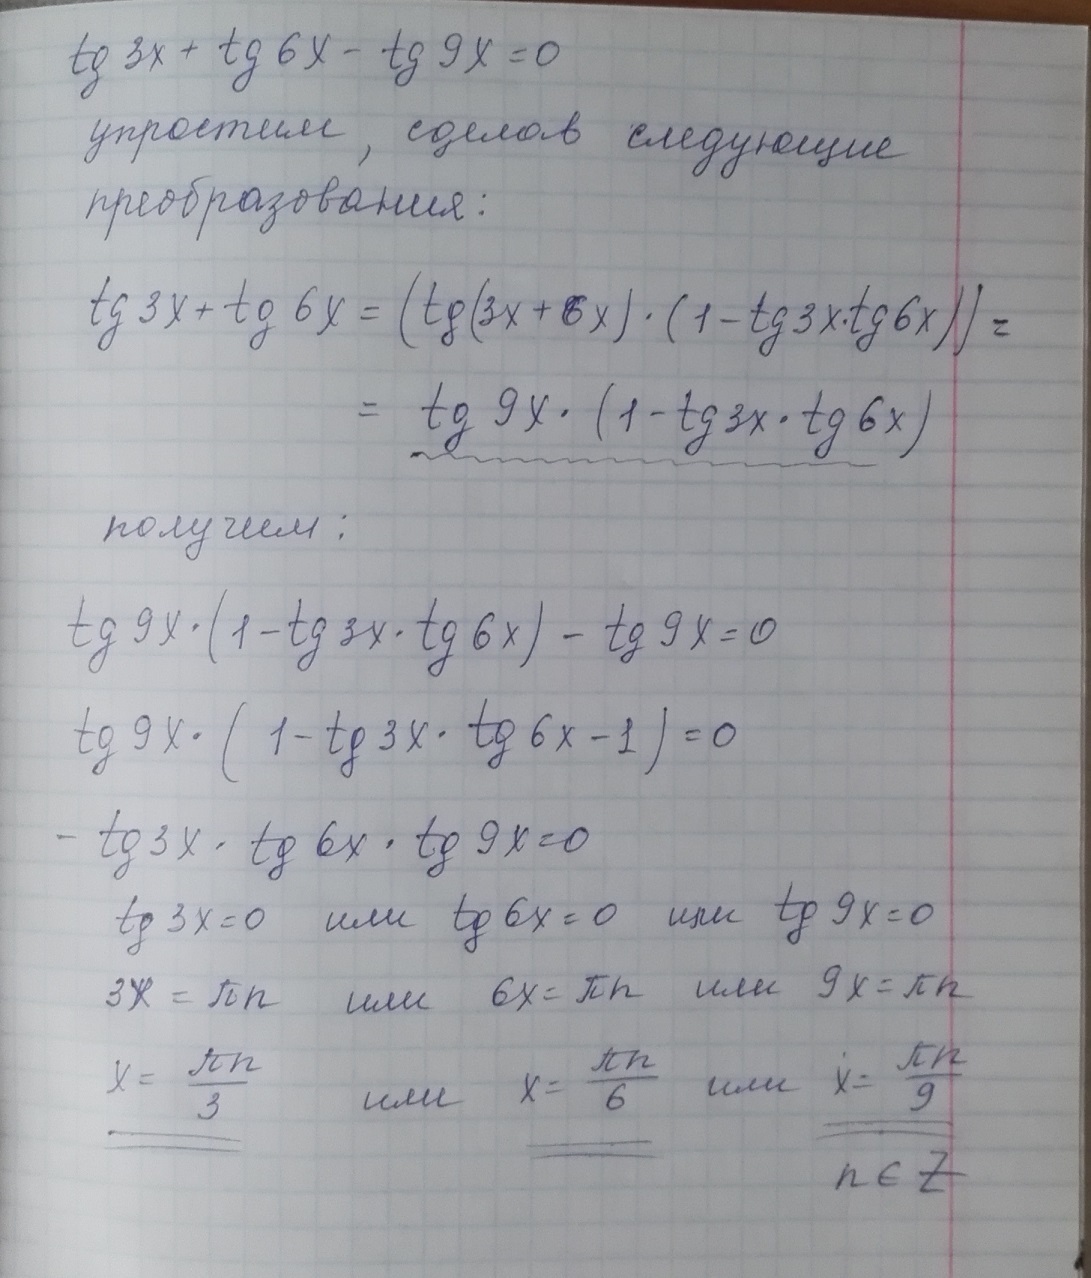 tg 3x + tg 6x - tg 9x = 0
упростим, сделав следующие
преобразования:
tg 3x + tg 6x = (tg(3x + 6x) · (1 - tg 3x · tg 6x)) =
= tg 9x · (1 - tg 3x · tg 6x)
получим:
tg 9x · (1 - tg 3x · tg 6x) - tg 9x = 0
tg 9x · (1 - tg 3x · tg 6x - 1) = 0
- tg 3x · tg 6x · tg 9x = 0
tg 3x = 0 или tg 6x = 0 или tg 9x = 0
3x = πn или 6x = πn или 9x = πn
x = πn/3 или x = πn/6 или x = πn/9
n ∈ Z